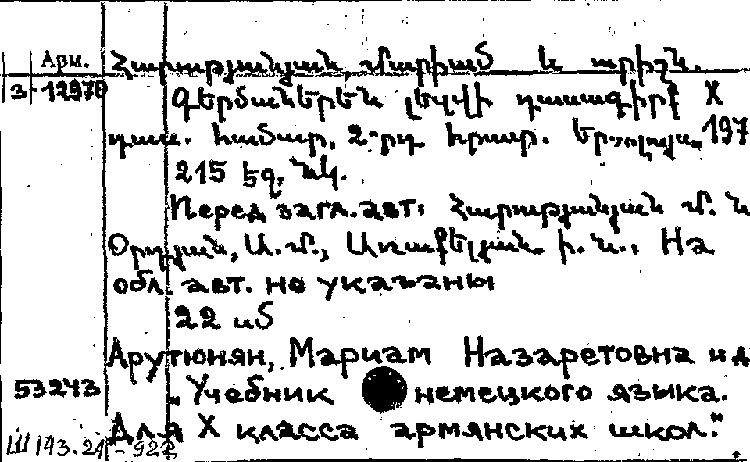 Арм.
Հարությունյան, Մարիամ և ուրիշն.
3-12970 Գերմաներեն լեզվի դասագիրք X
դաս. համար, 2-րդ հրատ. Եր., 197
215 եզ. նկ.
Перед загл. авт: Հարությունյան Մ. Ն
Օրդյան, Ա. Մ., Առաքելյան Ի. Ն.: На
обл. авт. не указаны
22 սմ
Арутюнян, Мариам Назаретовна и д
53243 „Учебник немецкого языка.
Для X класса армянских школ."
Ш143.24-922